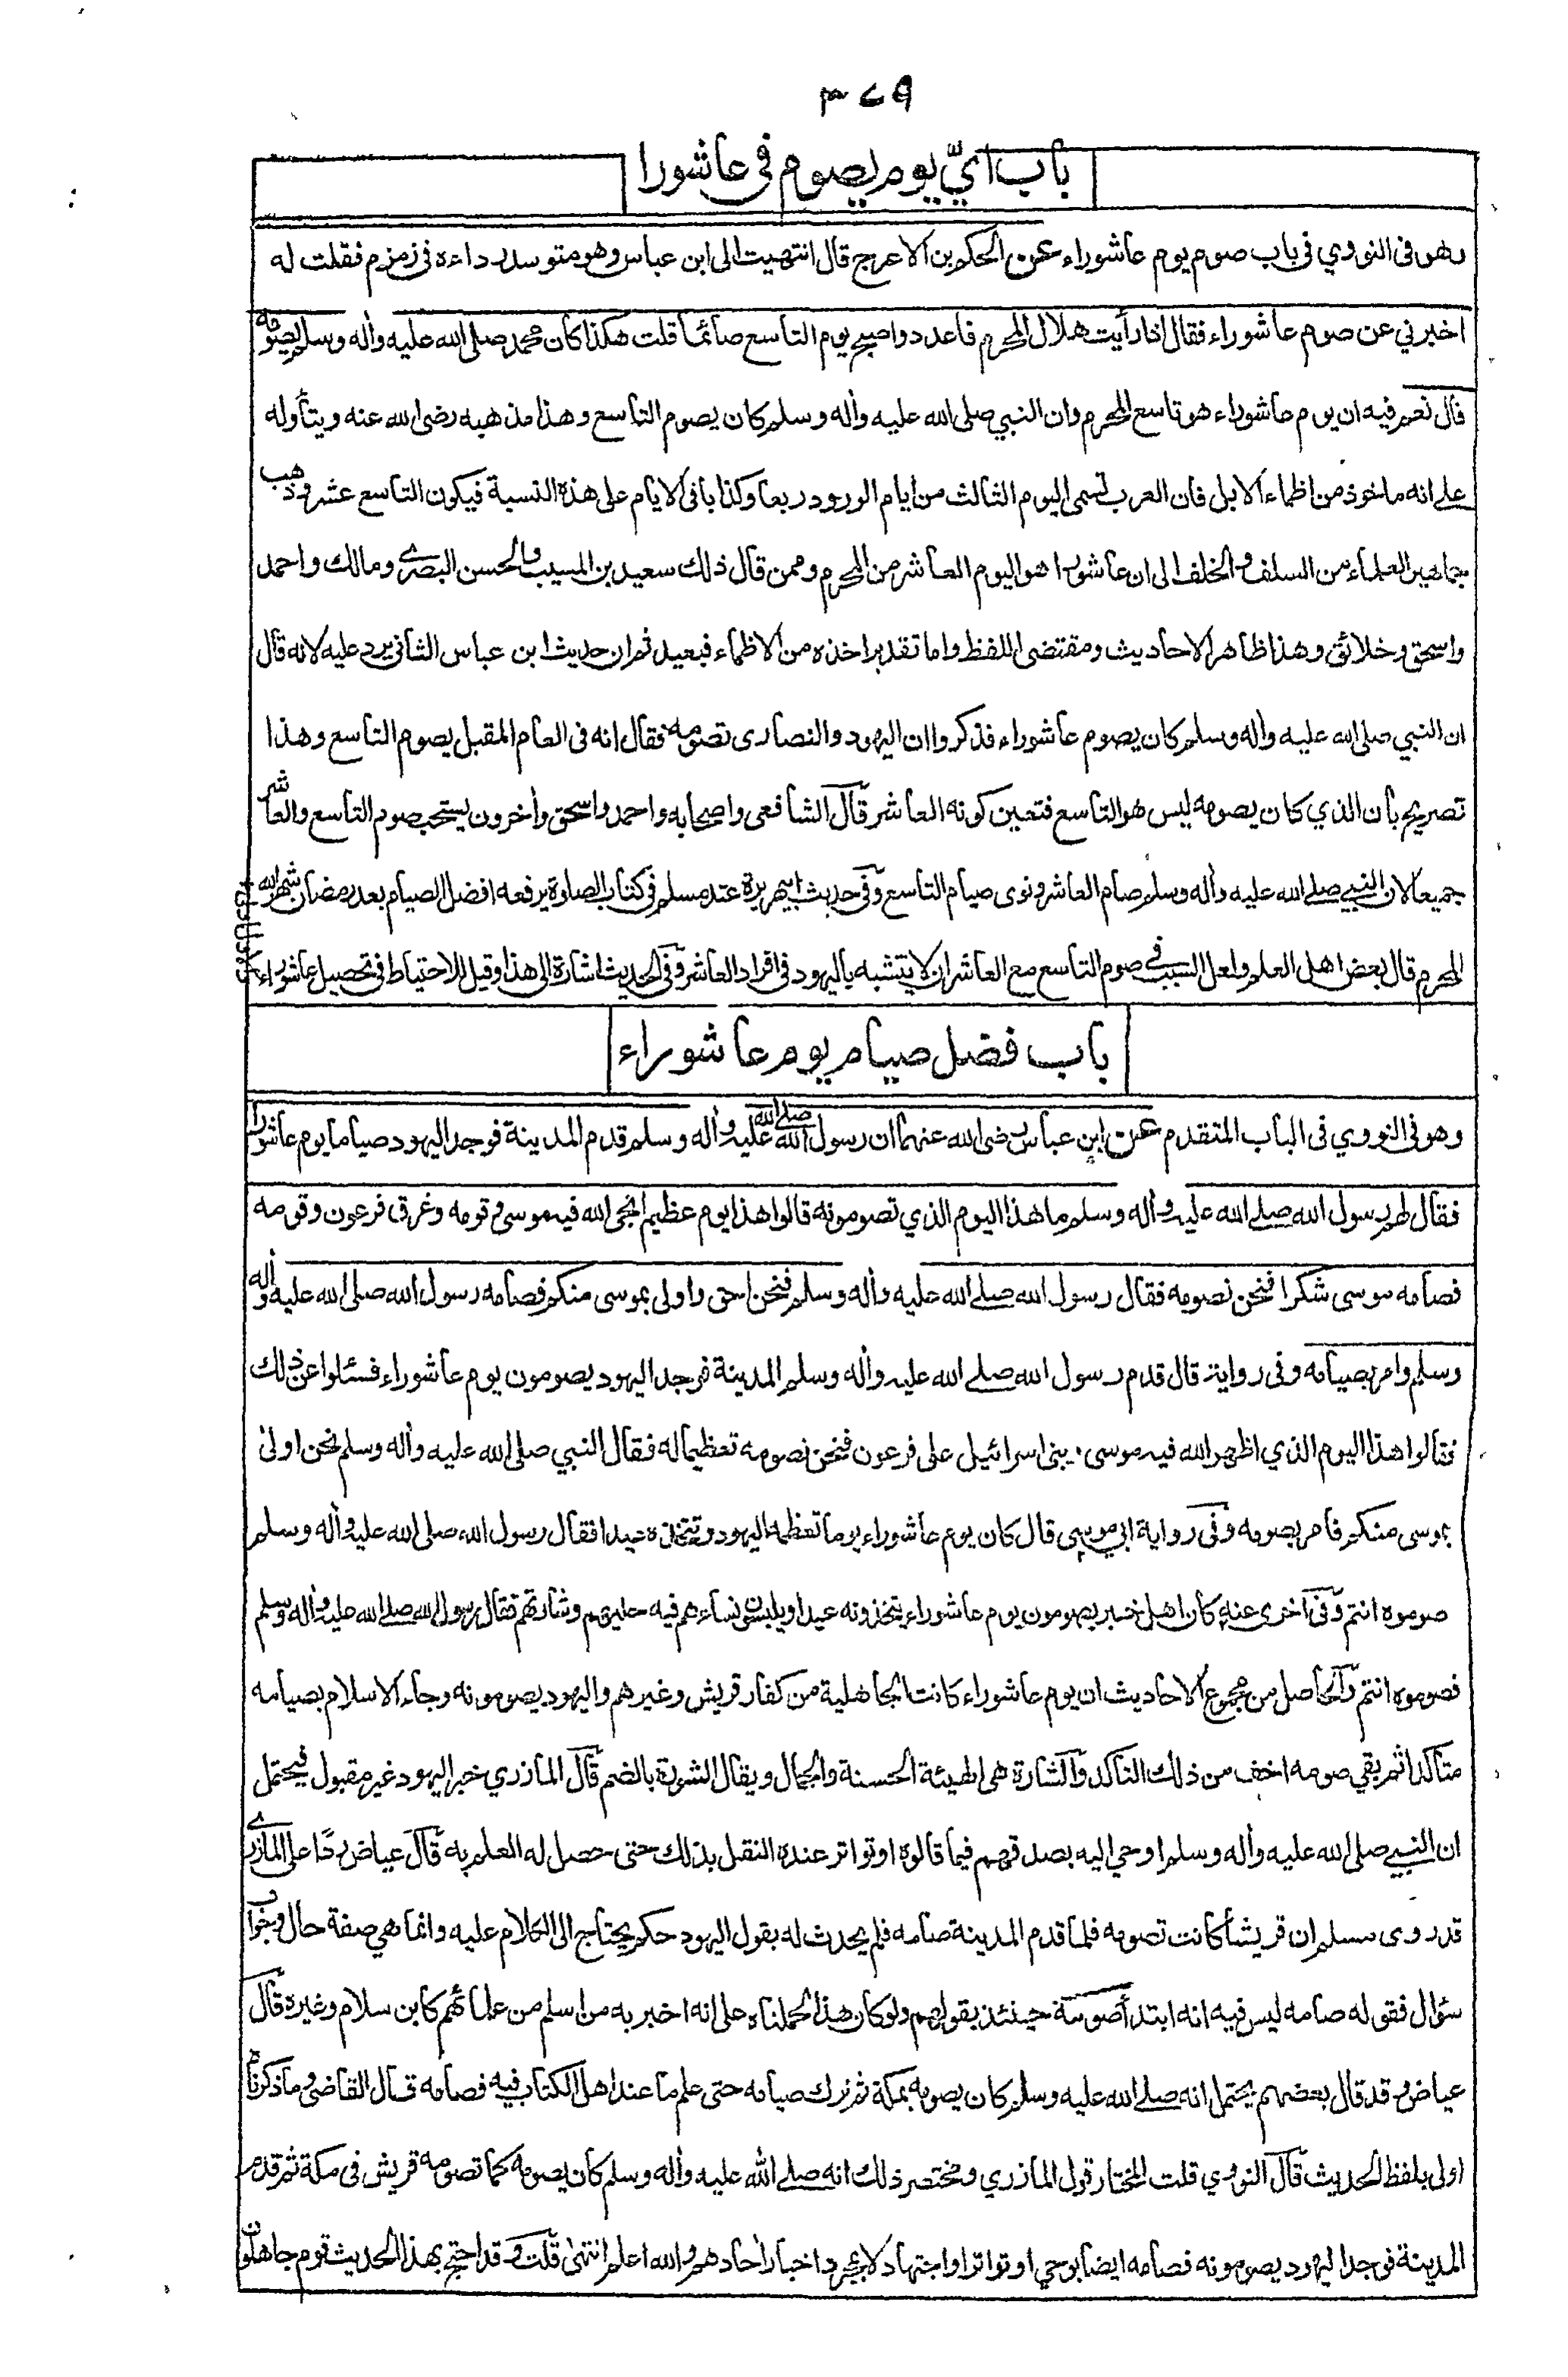 ٣٧٩
باب ايّ يوم يصوم في عاشورا
وهو في النووي في باب صوم يوم عاشوراء عن الحكم بن الاعرج قال انتهيت الى ابن عباس وهو متوسد رداءه في زمزم فقلت له
اخبرني عن صوم عاشوراء فقال اذا رأيت هلال المحرم فاعدد واصبح يوم التاسع صائما قلت هكذا كان محمد صلى الله عليه واٰله وسلم يصومه
قال نعم فيه ان يوم عاشوراء هو تاسع المحرم وان النبي صلى الله عليه واٰله وسلم كان يصوم التاسع وهذا مذهبه رضى الله عنه ويتأوله
على انه ماخوذ من اظماء الابل فان العرب تسمى اليوم الثالث من ايام الورود ربعا وكذا باقى الايام على هذه النسبة فيكون التاسع عشرا وذهب
جماهير العلماء من السلف والخلف الى ان عاشورا هو اليوم العاشر من المحرم وممن قال ذلك سعيد بن المسيب والحسن البصرے ومالك واحمد
واسحق وخلائق وهذا ظاهر الاحاديث ومقتضى اللفظ واما تقدير اخذه من الاظماء فبعيد ثم ان حديث ابن عباس الثانى يرد عليه لانه قال
ان النبي صلى الله عليه واٰله وسلم كان يصوم عاشوراء فذكروا ان اليهود والنصارى تصومه فقال انه فى العام المقبل يصوم التاسع وهذا
تصريح بأن الذي كان يصومه ليس هو التاسع فتعين كونه العاشر قال الشافعى واصحابه واحمد واسحق واٰخرون يستحب صوم التاسع والعاشر
جميعا لان النبي صلى الله عليه واٰله وسلم صام العاشر ونوى صيام التاسع وفى حديث ابي هريرة عند مسلم فى كتاب الصلوة يرفعه افضل الصيام بعد رمضان شهر الله
المحرم قال بعض اهل العلم ولعل السبب في صوم التاسع مع العاشر ان لا يتشبه باليهود فى افراد العاشر وفى الحديث اشارة الى هذا وقيل للاحتياط فى تحصيل عاشوراء
باب فضل صيام يوم عاشوراء
وهو فى النووي فى الباب المتقدم عن ابن عباس رضى الله عنهما ان رسول الله صلى الله عليه واٰله وسلم قدم المدينة فوجد اليهود صياما يوم عاشورا
فقال لهم رسول الله صلى الله عليه واٰله وسلم ما هذا اليوم الذي تصومونه قالوا هذا يوم عظيم انجى الله فيه موسى وقومه وغرق فرعون وقومه
فصامه موسى شكرا فنحن نصومه فقال رسول الله صلى الله عليه واٰله وسلم فنحن احق واولى بموسى منكم فصامه رسول الله صلى الله عليه واٰله
وسلم وامر بصيامه وفى رواية قال قدم رسول الله صلى الله عليه واٰله وسلم المدينة فوجد اليهود يصومون يوم عاشوراء فسئلوا عن ذلك
فقالوا هذا اليوم الذي اظهر الله فيه موسى وبنى اسرائيل على فرعون فنحن نصومه تعظيما له فقال النبي صلى الله عليه واٰله وسلم نحن اولىٰ
بموسى منكم فامر بصومه وفى رواية ابي موسى قال كان يوم عاشوراء يوما تعظمه اليهود وتتخذه عيدا فقال رسول الله صلى الله عليه واٰله وسلم
صوموه انتم وفى اخرى عنه كان اهل خيبر يصومون يوم عاشوراء يتخذونه عيدا ويلبسون نساءهم فيه حليهم وشارتهم فقال رسول الله صلى الله عليه واٰله وسلم
فصوموه انتم والحاصل من مجموع الاحاديث ان يوم عاشوراء كانت الجاهلية من كفار قريش وغيرهم واليهود يصومونه وجاء الاسلام بصيامه
متأكدا ثم بقي صومه اخف من ذلك التأكد والشارة هى الهيئة الحسنة والجمال ويقال الشورة بالضم قال المازري خبر اليهود غير مقبول فيحتمل
ان النبي صلى الله عليه واٰله وسلم اوحي اليه بصدقهم فيما قالوه او تواتر عنده النقل بذلك حتى حصل له العلم به قال عياض ردًا على المازرے
قد روى مسلم ان قريشأ كانت تصومه فلما قدم المدينة صامه فلم يحدث له بقول اليهود حكم يحتاج الى الكلام عليه وانما هي صفة حال وجواب
سؤال فقوله صامه ليس فيه انه ابتدأ صومه حينئذ بقولهم ولو كان هذا لحملناه على انه اخبر به من اسلم من علمائهم كابن سلام وغيره قال
عياض وقد قال بعضهم يحتمل انه صلى الله عليه وسلم كان يصومه بمكة ثم ترك صيامه حتى علم ما عند اهل الكتاب فيه فصامه قال القاضى وما ذكرناه
اولى بلفظ الحديث قال النووي قلت المختار قول المازري ومختصر ذلك انه صلى الله عليه واٰله وسلم كان يصومه كما تصومه قريش فى مكة ثم قدم
المدينة فوجد اليهود يصومونه فصامه ايضا بوحي او تواتر او اجتهاد لا بمجرد اخبار اٰحادهم والله اعلم انتهىٰ قلت وقد احتج بهذا الحديث قوم جاهلون